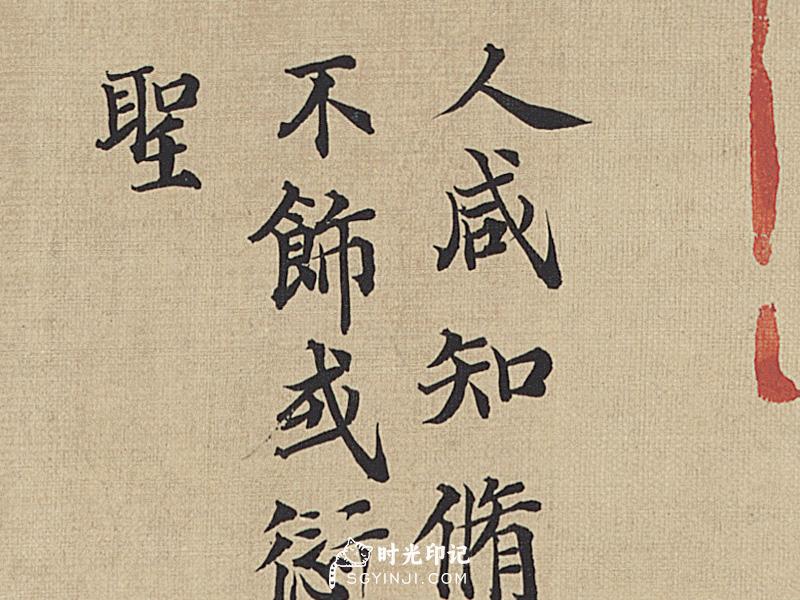 人咸知脩
不飾或愆
聖
时光印记
SGYINJI.COM